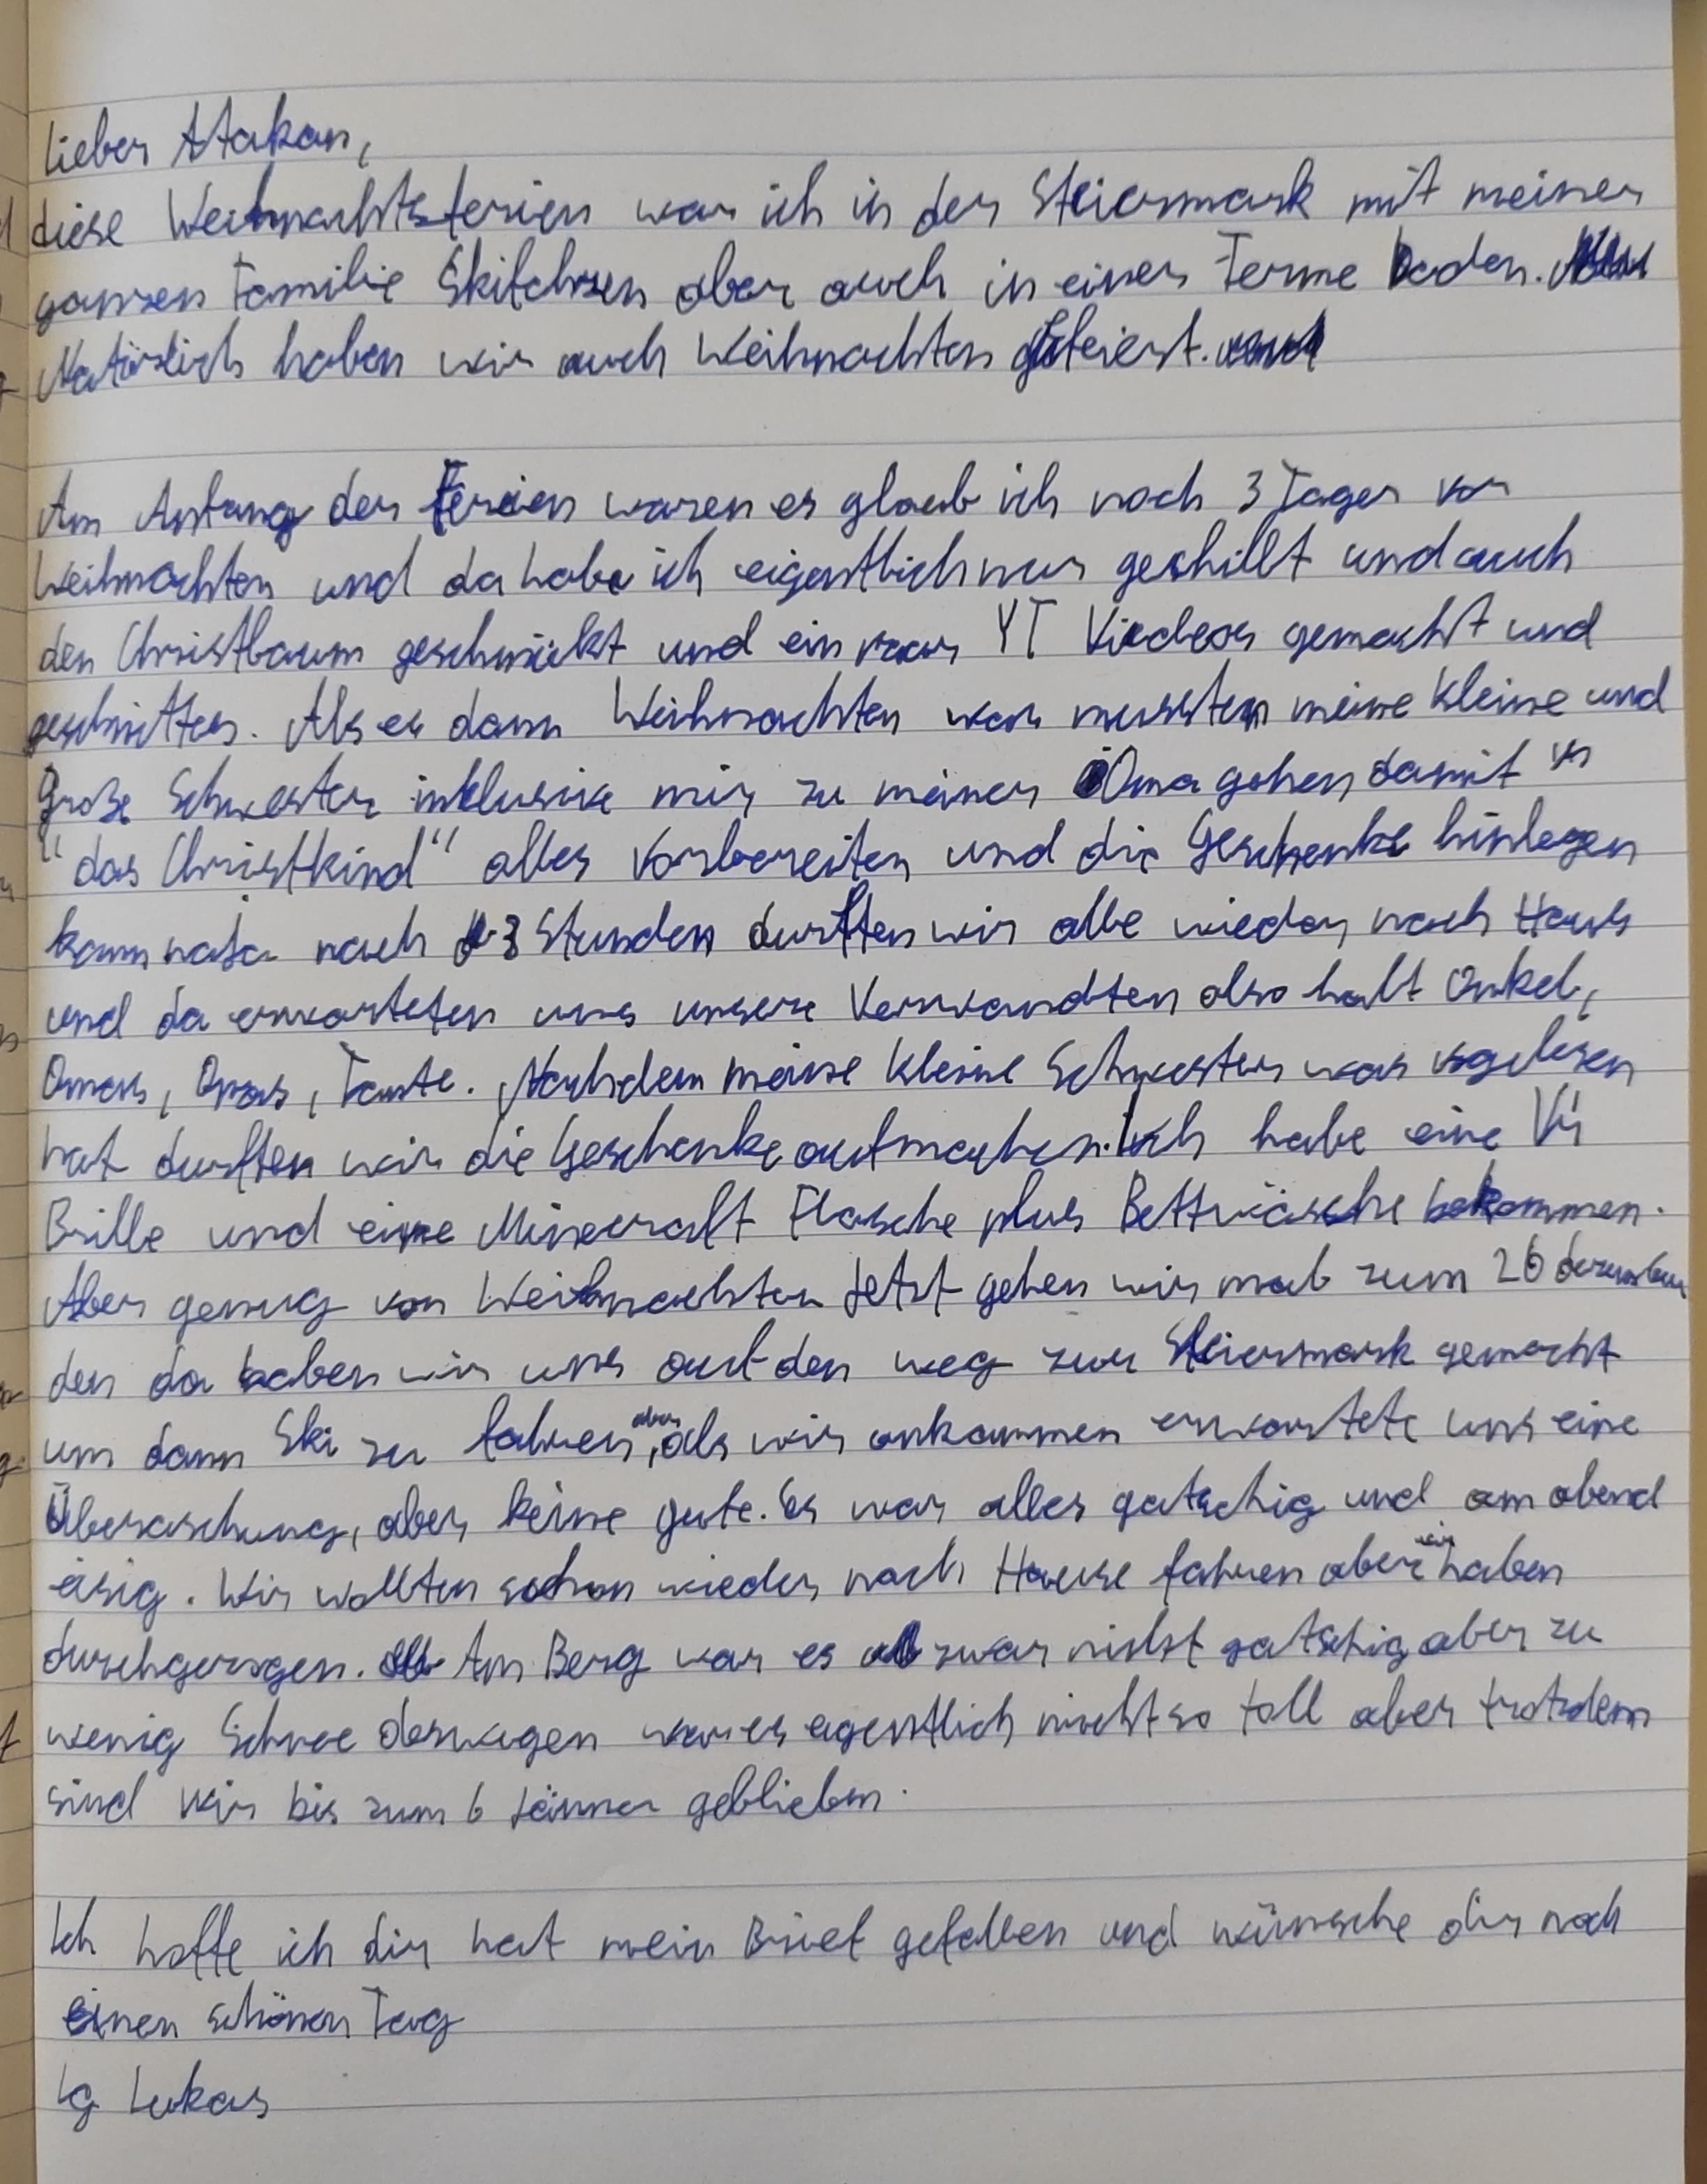 Lieber Atakan,
diese Weihnachtsferien war ich in der Steiermark mit meiner
ganzen Familie Skifahren aber auch in einer Terme baden.
Natürlich haben wir auch Weihnachten gefeiert.
Am Anfang der Ferien waren es glaub ich noch 3 Tage vor
Weihnachten und da habe ich eigentlich nur gechillt und auch
den Christbaum geschmückt und ein paar YT Videos gemacht und
geschnitten. Als es dann Weihnachten war mussten meine kleine und
große Schwester inklusive mir zu meiner Oma gehen damit
"das Christkind" alles vorbereiten und die Geschenke hinlegen
kann nach 3 Stunden durften wir alle wieder nach Haus
und da erwarteten uns unsere Verwandten also halt Onkel,
Omas, Opas, Tante. Nachdem meine kleine Schwester was vogelesen
hat durften wir die Geschenke aufmachen. Ich habe eine Vr
Brille und eine Minecraft Flasche plus Bettwäsche bekommen.
Aber genug von Weihnachten Jetzt gehen wir mal zum 26 dezember
den da haben wir uns auf den weg zur Steiermark gemacht
um dann Ski zu fahren, aber als wir ankammen erwartete uns eine
Überaschung, aber keine gute. Es war alles gatschig und am abend
eisig. Wir wollten schon wieder nach Hause fahren aber wir haben
durchgezogen. Am Berg war es zwar nicht gatschig aber zu
wenig Schnee deswegen war es eigentlich nicht so toll aber trotzdem
sind wir bis zum 6 Jänner geblieben.
Ich hoffe ich dir hat mein Brief gefallen und wünsche dir noch
einen schönen Tag
Lg Lukas